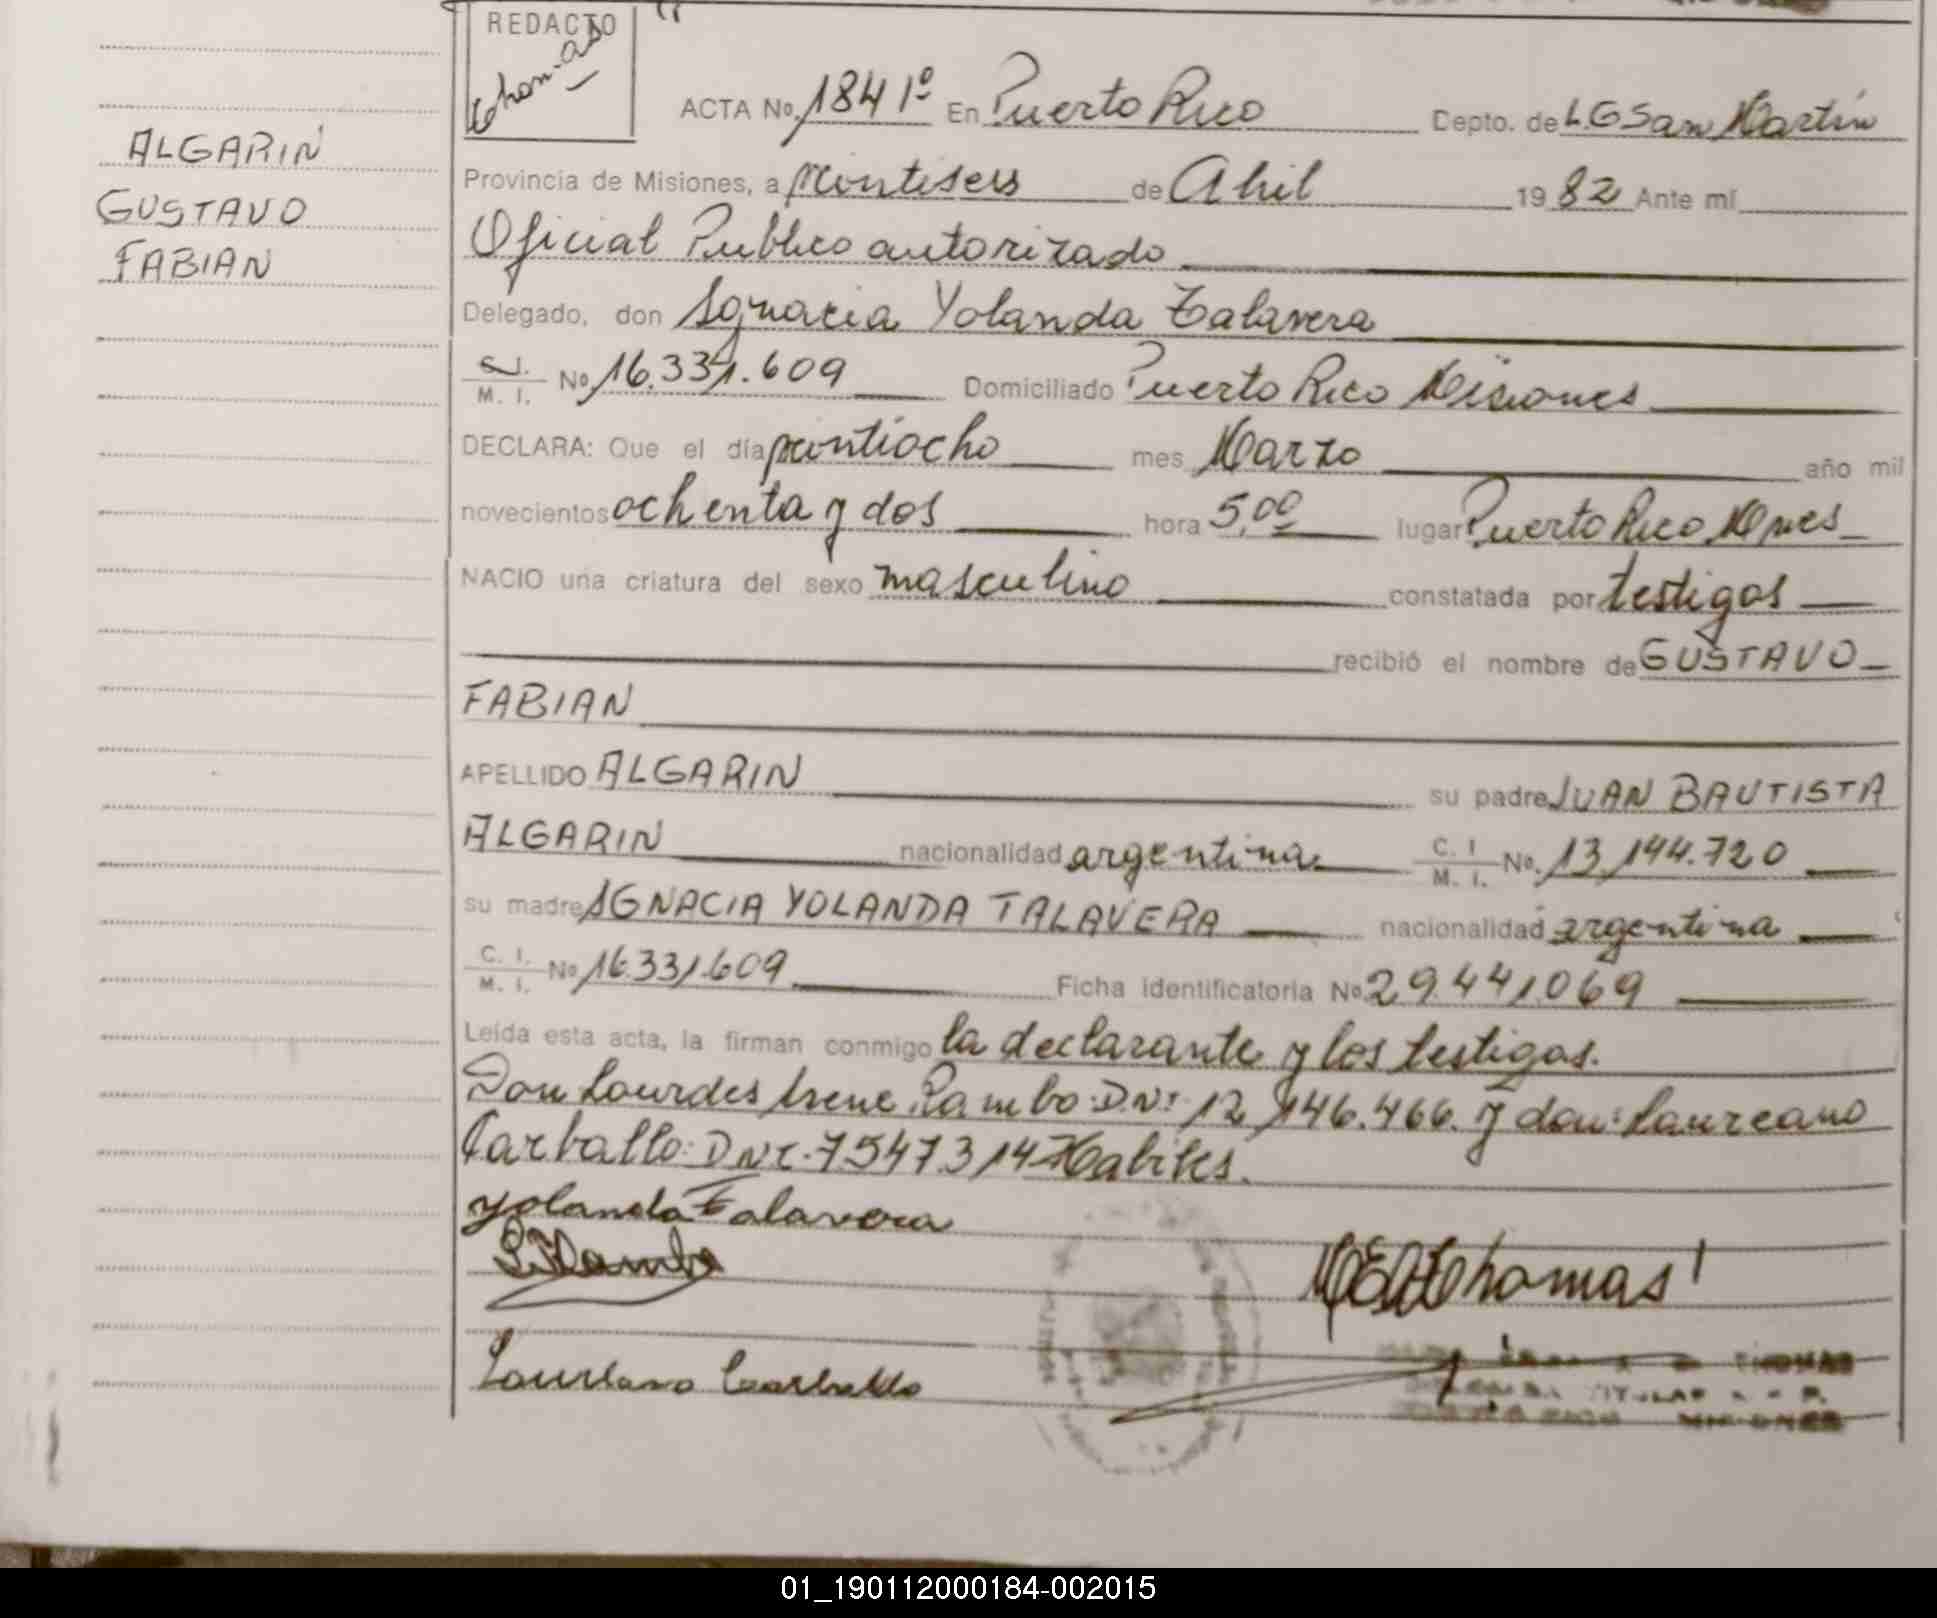 REDACTO
Thomas
ALGARIN
GUSTAVO
FABIAN
ACTA No. 184 1º En Puerto Rico Depto. de L.G San Martín
Provincia de Misiones, a veintiseis de Abril 1982 Ante mí
Oficial Publico autorizado
Delegado, don Ignacia Yolanda Talavera
C.I. M. I. No 16.331.609 Domiciliado Puerto Rico Misiones
DECLARA: Que el día veintiocho mes Marzo año mil
novecientos ochenta y dos hora 5,00 lugar Puerto Rico Mnes
NACIO una criatura del sexo masculino constatada por testigos
recibió el nombre de GUSTAVO
FABIAN
APELLIDO ALGARIN su padre JUAN BAUTISTA
ALGARIN nacionalidad argentina C. I M. I. No. 13,144.720
su madre IGNACIA YOLANDA TALAVERA nacionalidad argentina
C. I. M. I. No 16.331.609 Ficha identificatoria No 29.441.069
Leída esta acta, la firman conmigo la declarante y los testigos.
Don Lourdes Irene Rambo: DNI 12,146.466. y don: Laureano
Carballo: DNI. 7547314 Habiles.
Yolanda Talavera
Thomas
Laureano Carballo
THOMAS
TITULAR
MISIONES
01_190112000184-002015